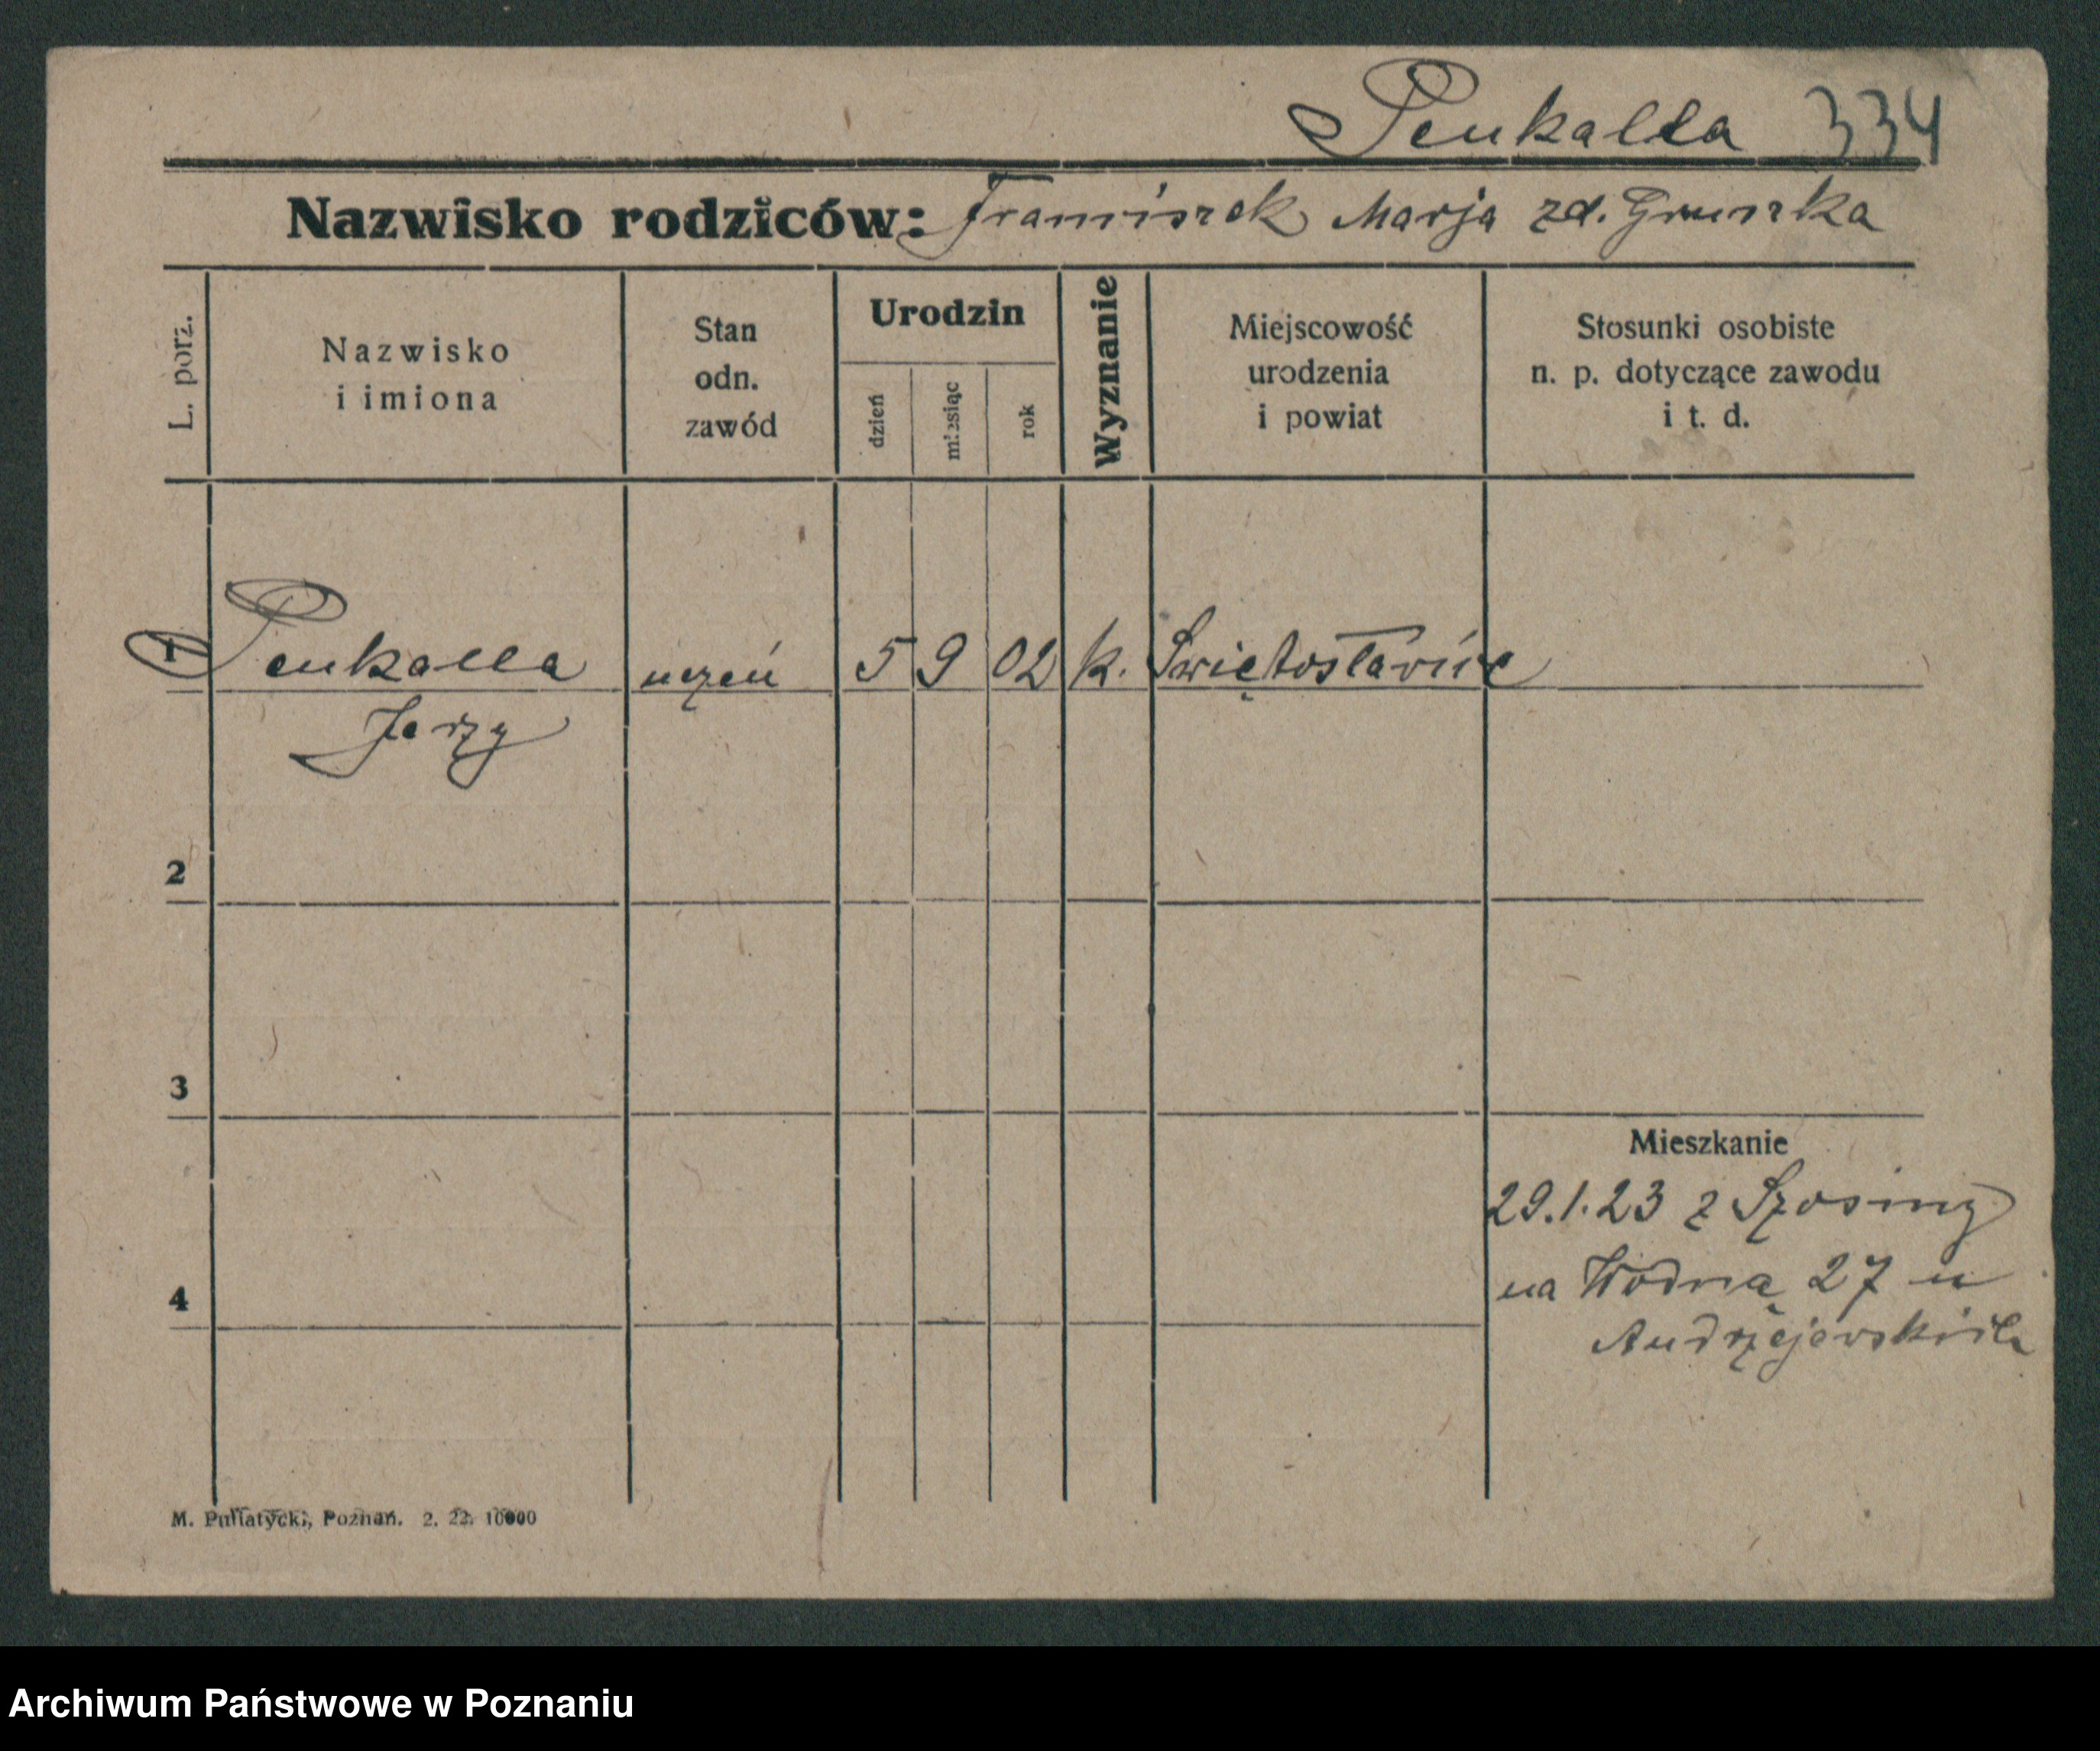 Penkalla 334
Nazwisko rodziców: Franciszek Marja zd. Grunzka
L. porz.
Nazwisko
i imiona
Stan
odn.
zawód
Urodzin
dzień
miesiąc
rok
Wyznanie
Miejscowość
urodzenia
i powiat
Stosunki osobiste
n. p. dotyczące zawodu
i t. d.
1 Penkalla uczeń 5 9 02 k.
Jerzy
2
3
Mieszkanie
29.1.23 z
4
na Wodną 27 u
M. Putiatycki, Poznań. 2. 22. 10000
Archiwum Państwowe w Poznaniu